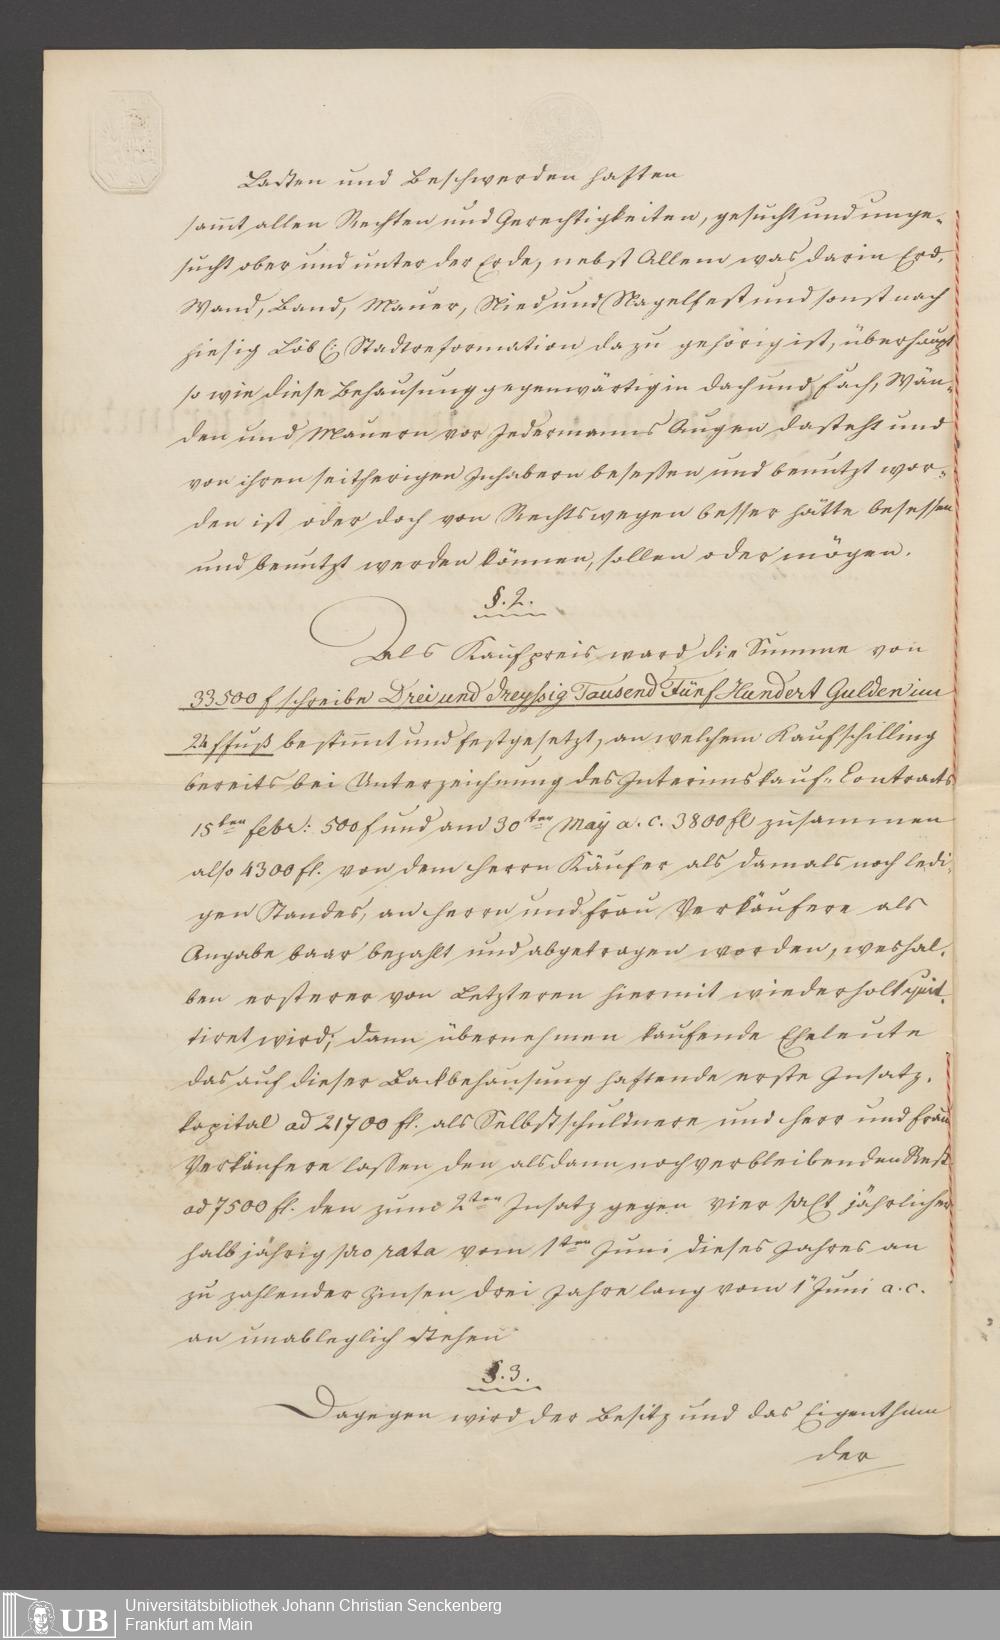 Lasten und Beschwerden haften
sam̄t allen Rechten und Gerechtigkeiten, gesucht und unge-
sucht ober und unter der Erde, nebst Allem was darin Erd,
Wand, Band, Mauer, Nied und Nagelfest und sonst nach
hiesig Löb (: Stadtreformation dazu gehörig ist, überhaupt
so wie diese Behausung gegenwärtig in Dach und Fach, Wän-
den und Mauern vor Jedermanns Augen dasteht und
von ihren seitherigen Inhabern besessen und benutzt wor-
den ist oder doch von Rechtswegen besser hätte besessen
und benutzt werden können, sollen oder mögen.
§. 2.
Als Kaufpreis ward die Summe von
33500 f schreibe Drei und dreyßig Tausend Fünf Hundert Gulden im
24 f fuß bestim̄t und festgesetzt, an welchem Kaufschilling
bereits bei Unterzeichnung des Interimskauf-Contracts
15ten Febr: 500 f und am 30ten May a. c. 3800 fl zusammen
also 4300 fl. von dem Herrn Käufer als damals noch ledi-
gen Standes, an Herrn und Frau Verkäufere als
Angabe baar bezahlt und abgetragen worden, weshal-
ben ersterer von Letzteren hiermit wiederholt quit-
tiret wird; dann übernehmen kaufende Eheleute
das auf dieser Backbehausung haftende erste Insatz-
kapital ad 21700 fl. als Selbstschuldnere und Herr und Frau
Verkäufere lassen den alsdann noch verbleibenden Rest
ad 7500 fl. den zum 2ten Insatz gegen vier jährlicher
halbjährig pro rata vom 1ten Juni dieses Jahres an
zu zahlender Zinsen drei Jahre lang vom 1 Juni a. c.
an unableglich stehen
§. 3.
Dagegen wird der Besitz und das Eigenthum
der
UB
Universitätsbibliothek Johann Christian Senckenberg
Frankfurt am Main